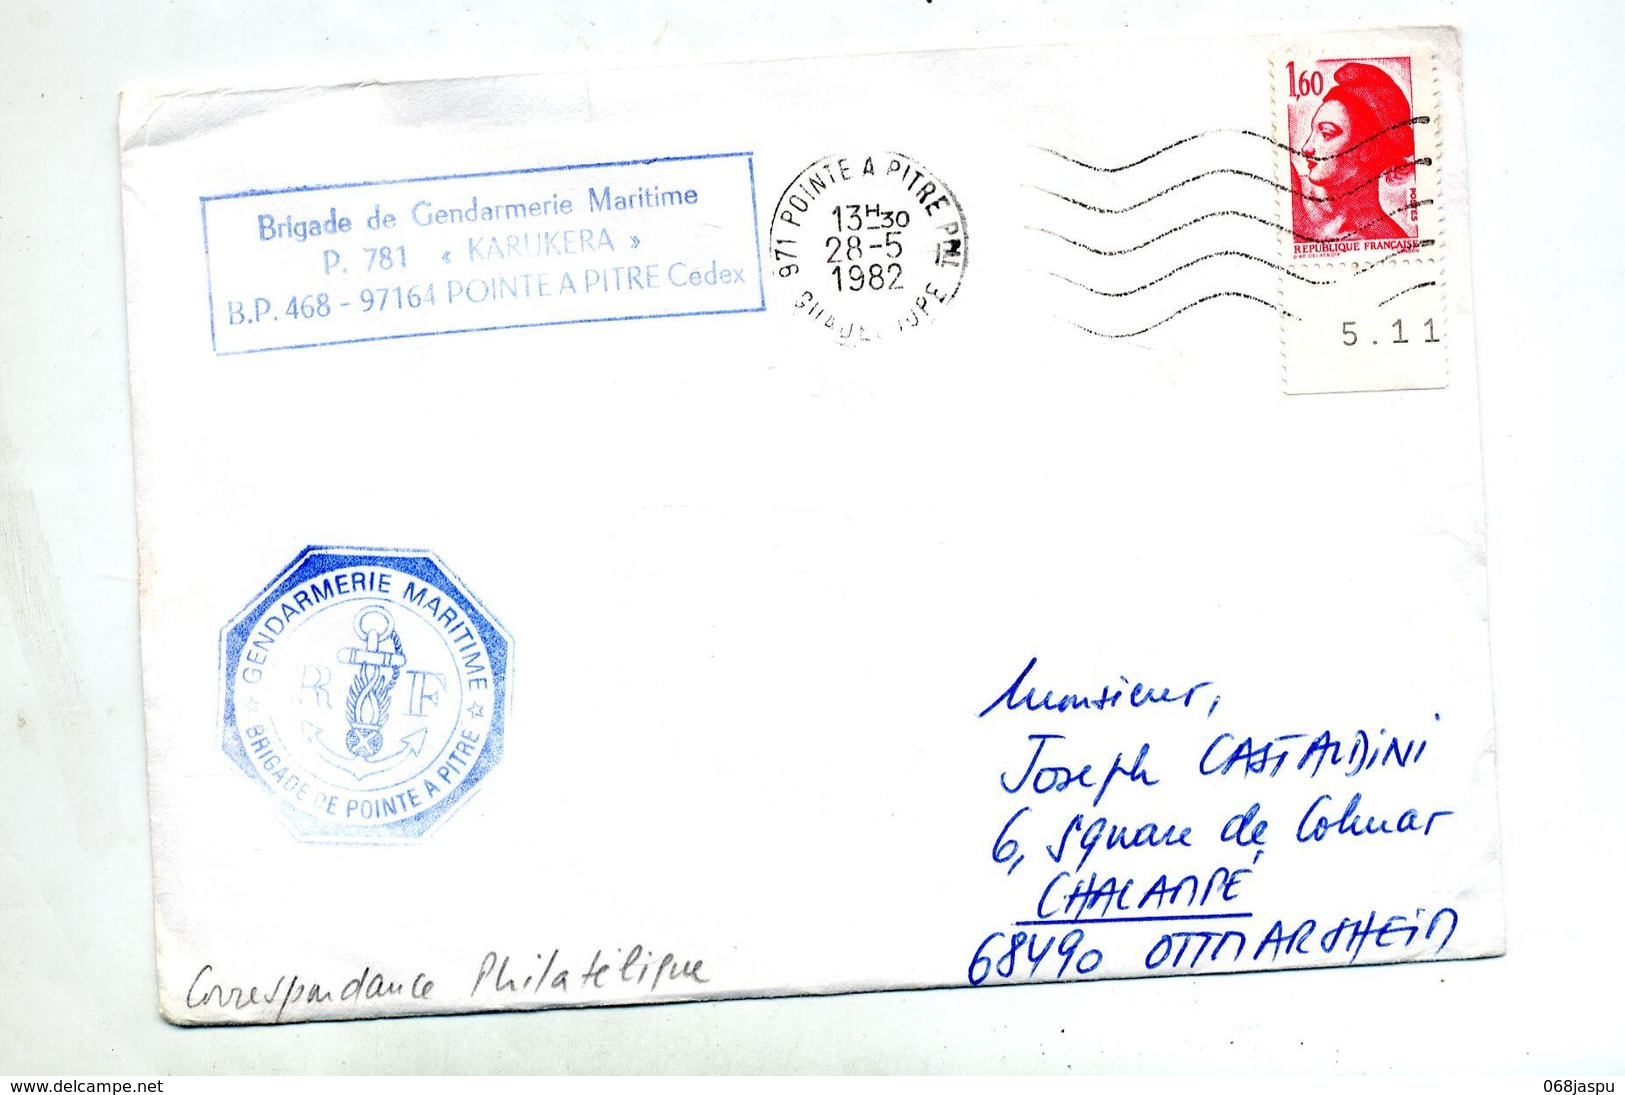 Brigade de Gendarmerie Maritime
P. 781 « KARUKERA »
B.P. 468 - 97164 POINTE A PITRE Cedex
971 POINTE A PITRE PAL
13H30
28-5
1982
1,60
POSTES
REPUBLIQUE FRANÇAISE
D'AP. DELACROIX GANDON
5.11
GENDARMERIE MARITIME
RF
BRIGADE DE POINTE A PITRE
Monsieur,
Joseph CASTALDINI
6, Square de Colmar
CHALAMPÉ
68490 OTTMARSHEIM
Correspondance Philatélique
www.delcampe.net
068jaspu